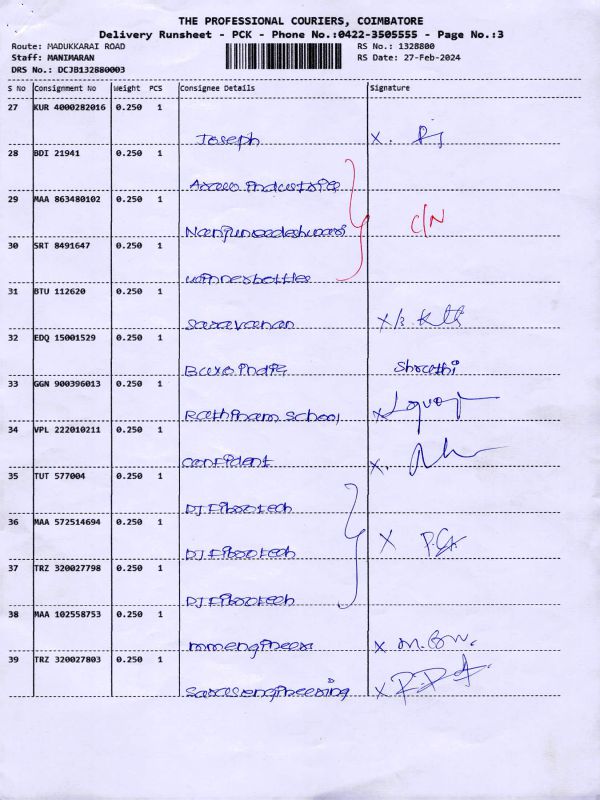 THE PROFESSIONAL COURIERS, COIMBATORE
Delivery Runsheet - PCK - Phone No.:0422-3505555 - Page No.:3
Route: MADUKKARAI ROAD RS No.: 1328800
Staff: MANIMARAN RS Date: 27-Feb-2024
DRS No.: DCJB132880003
S No Consignment No Weight PCS Consignee Details Signature
27 KUR 4000282016 0.250 1
Joseph X.
28 BDI 21941 0.250 1
29 MAA 863480102 0.250 1
C/N
30 SRT 8491647 0.250 1
winnerbottles
31 BTU 112620 0.250 1
Saravanan
32 EDQ 15001529 0.250 1
Shruthi
33 GGN 900396013 0.250 1
Rathinam School X
34 VPL 222010211 0.250 1
confident X.
35 TUT 577004 0.250 1
DJ Fibrotech
36 MAA 572514694 0.250 1
DJ Fibrotech X
37 TRZ 320027798 0.250 1
DJ Fibrotech
38 MAA 102558753 0.250 1
mmengineers X
39 TRZ 320027803 0.250 1
X